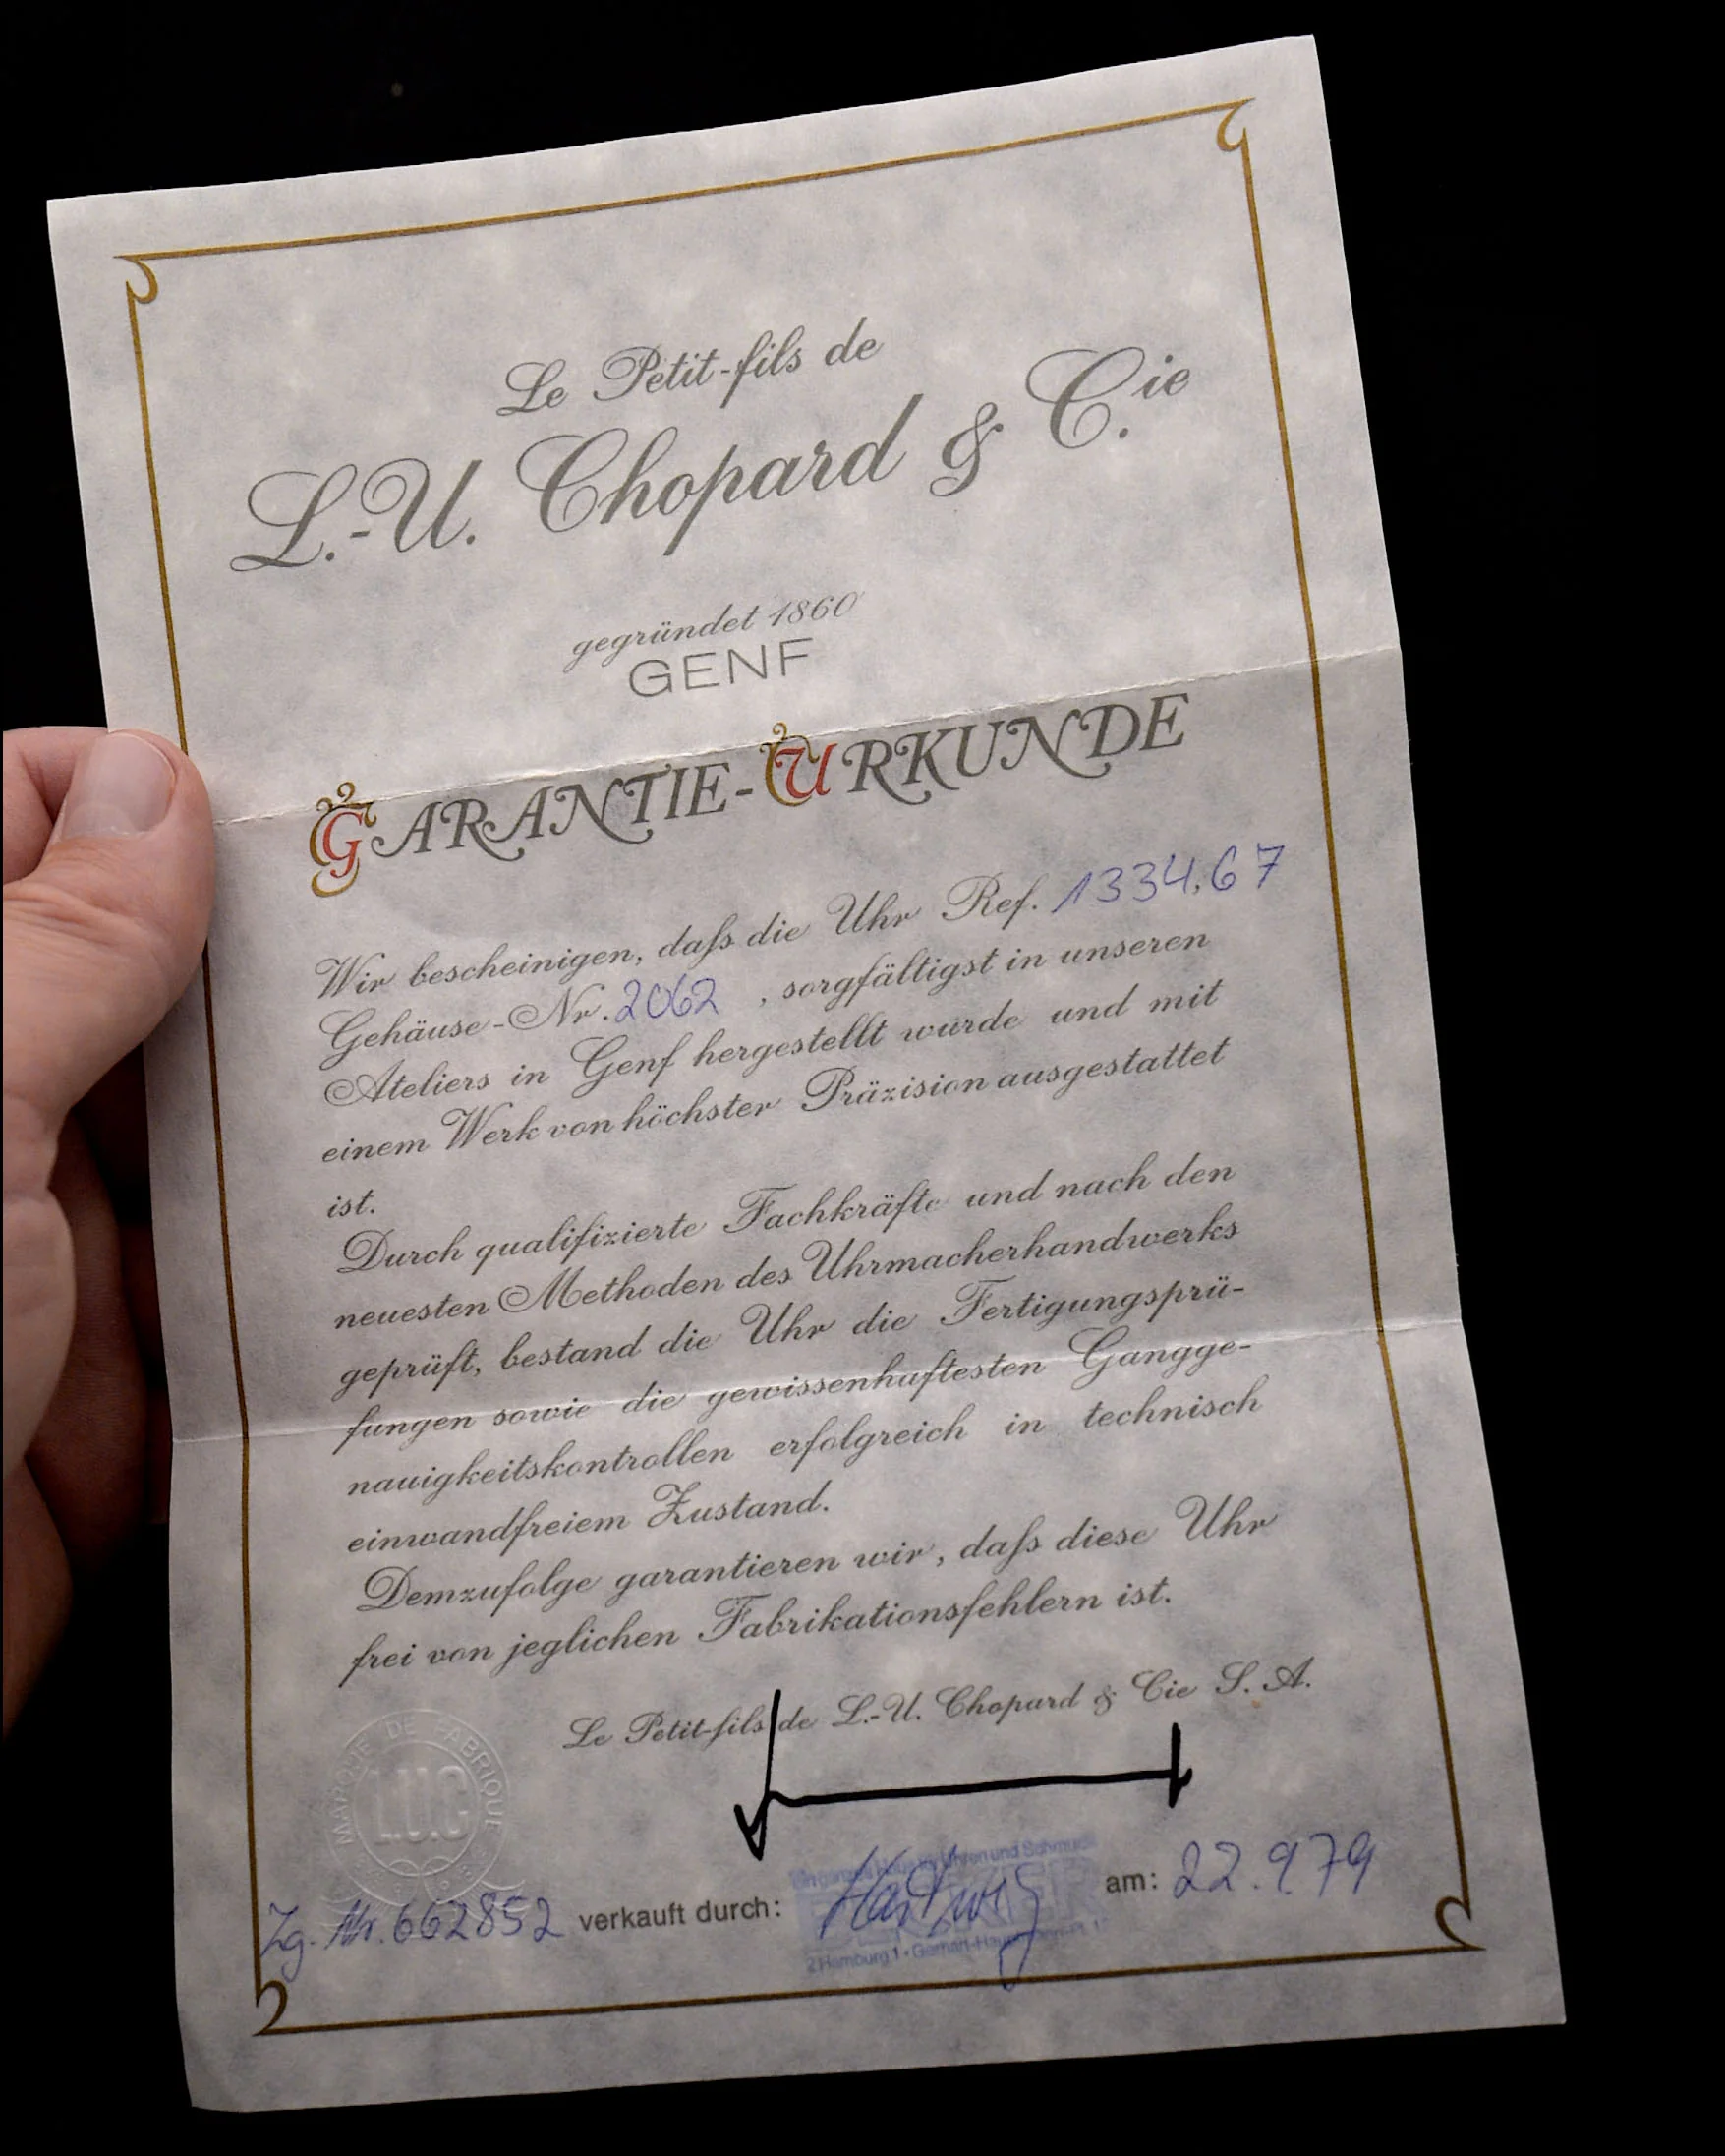 Le Petit-fils de
L.-U. Chopard & C.ie
gegründet 1860
GENF
GARANTIE-URKUNDE
Wir bescheinigen, daß die Uhr Ref. 1334,67
Gehäuse-Nr. 2062 , sorgfältigst in unseren
Ateliers in Genf hergestellt wurde und mit
einem Werk von höchster Präzision ausgestattet
ist.
Durch qualifizierte Fachkräfte und nach den
neuesten Methoden des Uhrmacherhandwerks
geprüft, bestand die Uhr die Fertigungsprü-
fungen sowie die gewissenhaftesten Gangge-
nauigkeitskontrollen erfolgreich in technisch
einwandfreiem Zustand.
Demzufolge garantieren wir, daß diese Uhr
frei von jeglichen Fabrikationsfehlern ist.
Le Petit-fils de L.-U. Chopard & Cie S. A.
MARQUE DE FABRIQUE
L.U.C
Uhren und Schmuck
2 Hamburg 1 · Gerhart-Hauptmann-Pl.
Zg. Nr. 662852 verkauft durch: am: 22.9.79